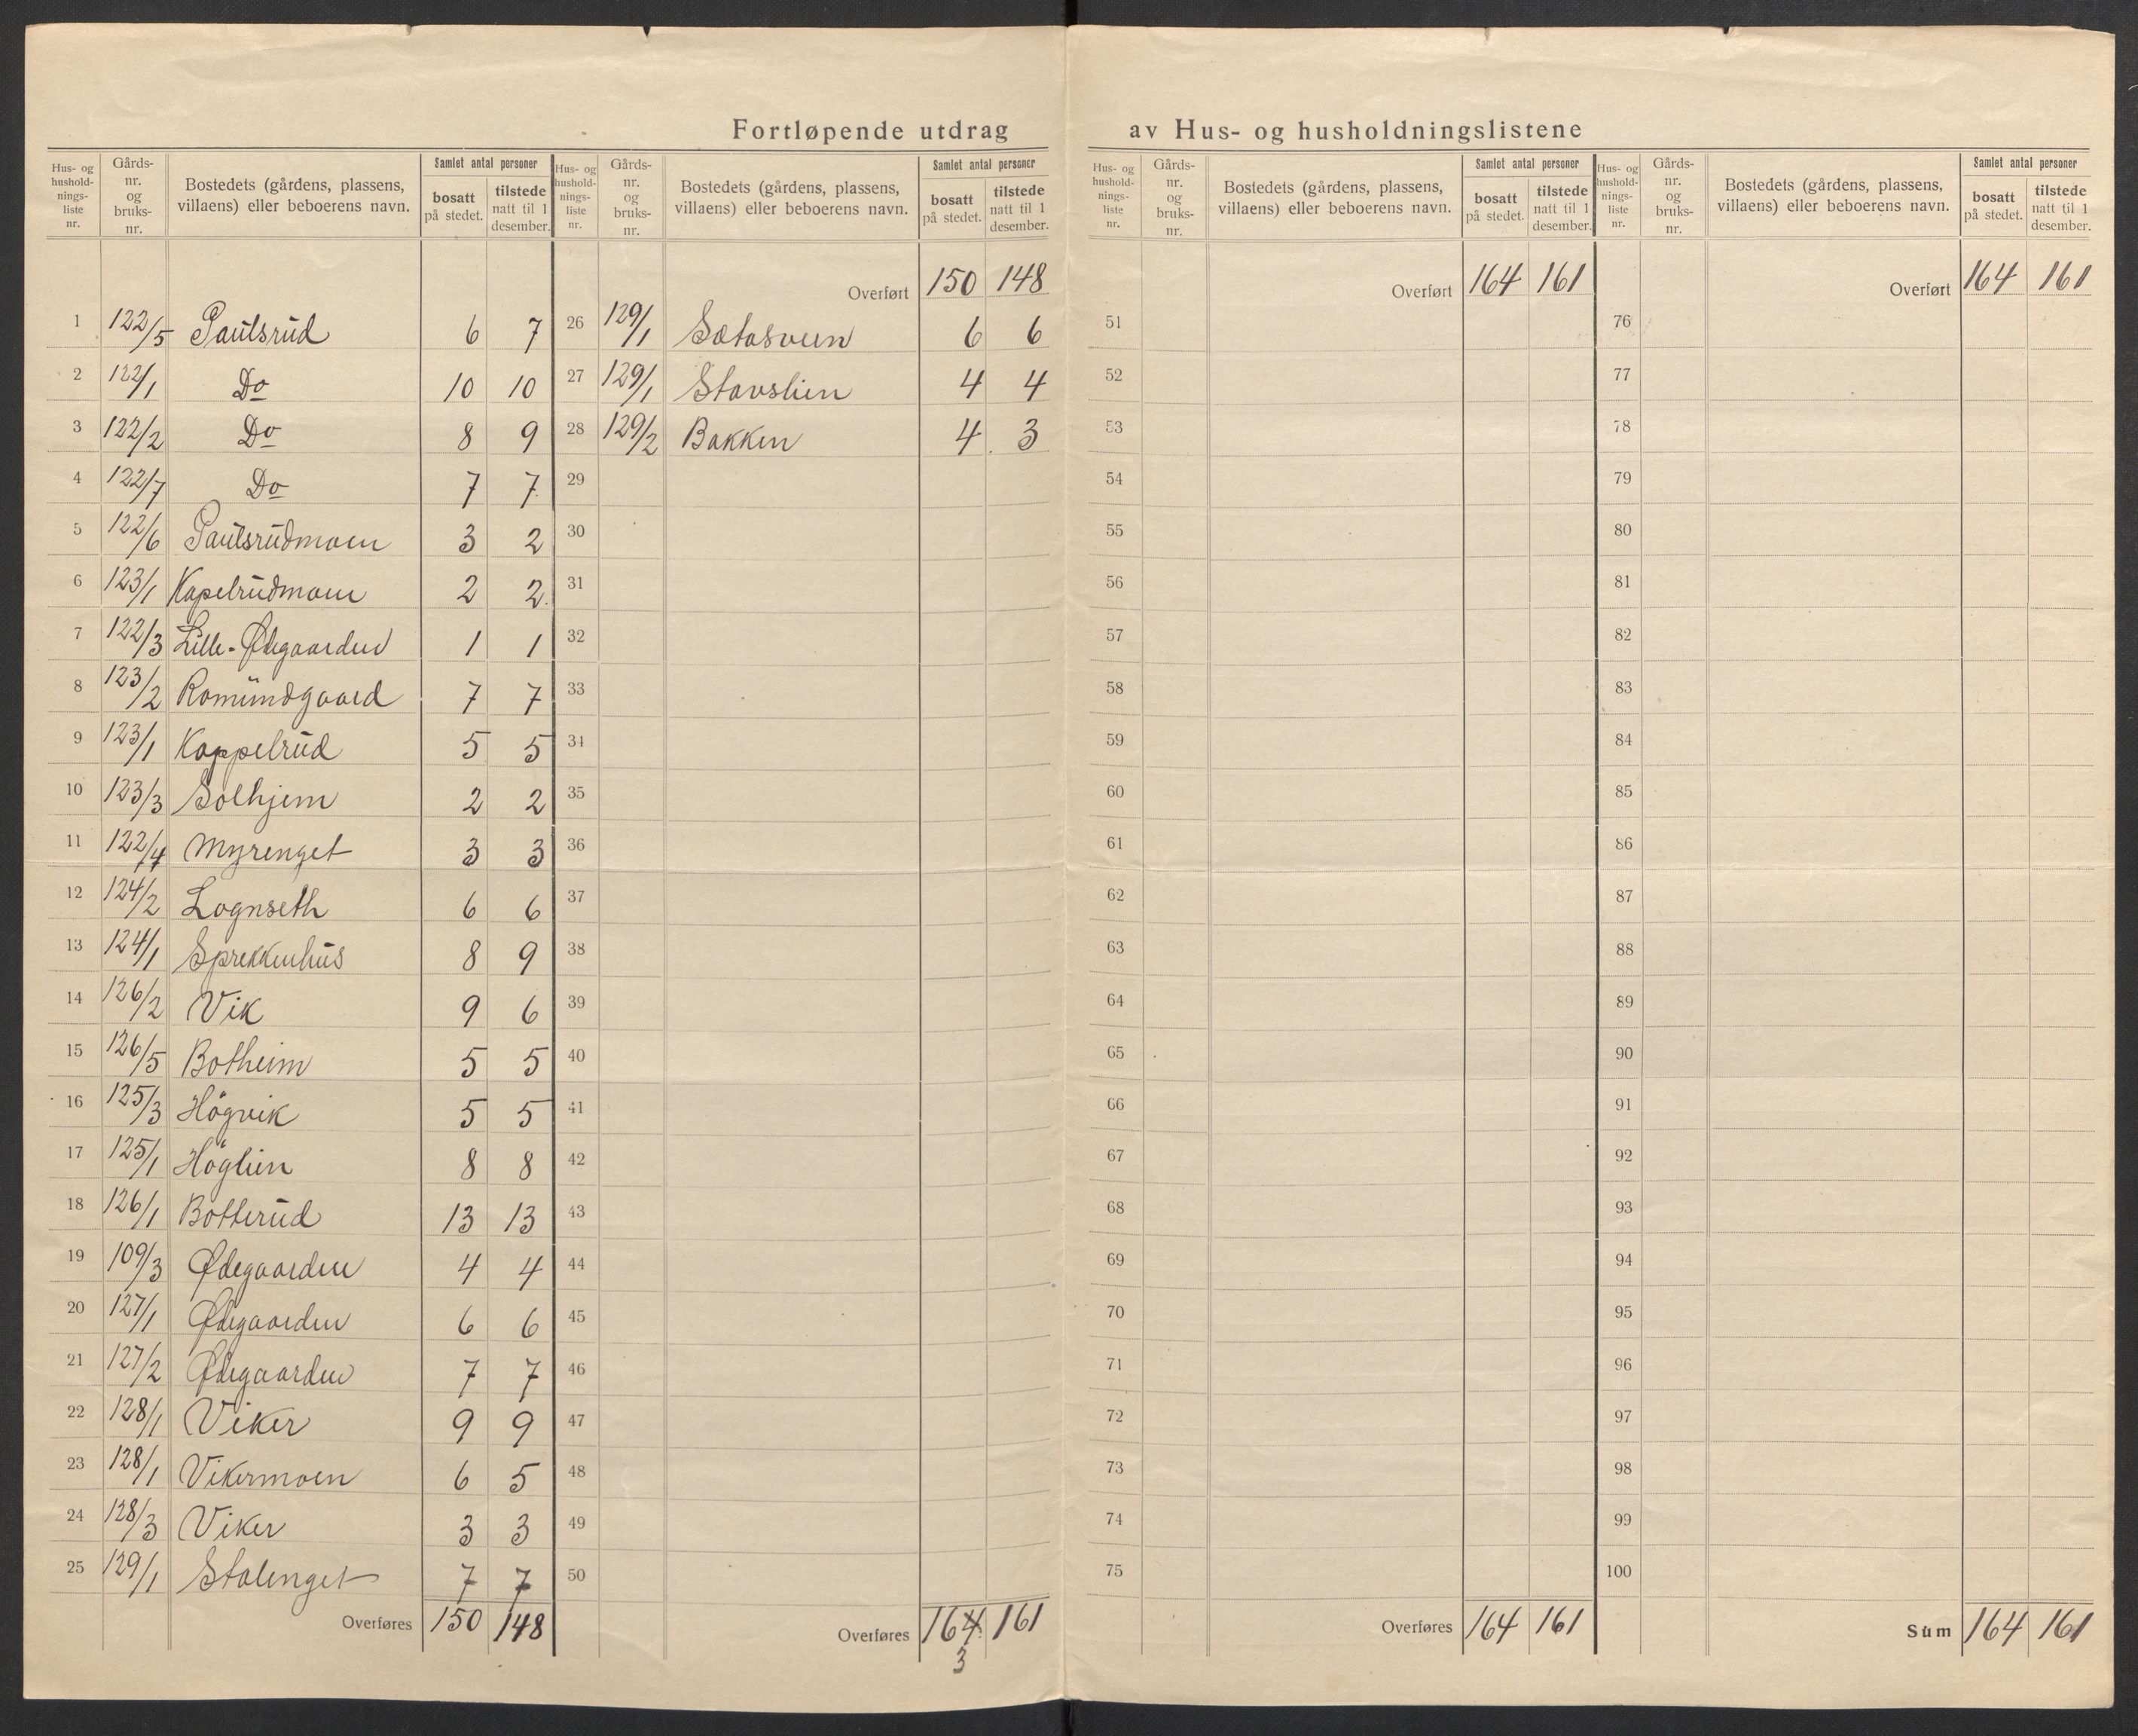 Fortløpende utdrag av Hus- og husholdningslistene
Hus- og hushold-nings-liste nr. Gårds-nr. og bruks-nr. Bostedets (gårdens, plassens, villaens) eller beboerens navn. Samlet antal personer bosatt på stedet. tilstede natt til 1 desember.
1 122/5 Paulsrud 6 7
2 122/1 Do 10 10
3 122/2 Do 8 9
4 122/7 Do 7 7
5 122/6 Paulsrudmoen 3 2
6 123/1 Kapelrudmoen 2 2
7 122/3 Lille-Ødegaarden 1 1
8 123/2 Romundgaard 7 7
9 123/1 Kappelrud 5 5
10 123/3 Solhjem 2 2
11 122/4 Myrenget 3 3
12 124/2 Lognseth 6 6
13 124/1 Sprekkenhus 8 9
14 126/2 Vik 9 6
15 126/5 Botheim 5 5
16 125/3 Högvik 5 5
17 125/1 Höglien 8 8
18 126/1 Botterud 13 13
19 109/3 Ødegaarden 4 4
20 127/1 Ødegaarden 6 6
21 127/2 Ødegaarden 7 7
22 128/1 Viker 9 9
23 128/1 Vikermoen 6 5
24 128/3 Viker 3 3
25 129/1 Stalenget 7 7
Overføres 150 148
Hus- og hushold-nings-liste nr. Gårds-nr. og bruks-nr. Bostedets (gårdens, plassens, villaens) eller beboerens navn. Samlet antal personer bosatt på stedet. tilstede natt til 1 desember.
Overført 150 148
26 129/1 Sætasveen 6 6
27 129/1 Stavslien 4 4
28 129/2 Bakken 4 3
29
30
31
32
33
34
35
36
37
38
39
40
41
42
43
44
45
46
47
48
49
50
Overføres 164 161
3
Hus- og hushold-nings-liste nr. Gårds-nr. og bruks-nr. Bostedets (gårdens, plassens, villaens) eller beboerens navn. Samlet antal personer bosatt på stedet. tilstede natt til 1 desember.
Overført 164 161
51
52
53
54
55
56
57
58
59
60
61
62
63
64
65
66
67
68
69
70
71
72
73
74
75
Overføres 164 161
Hus- og hushold-nings-liste nr. Gårds-nr. og bruks-nr. Bostedets (gårdens, plassens, villaens) eller beboerens navn. Samlet antal personer bosatt på stedet. tilstede natt til 1 desember.
Overført 164 161
76
77
78
79
80
81
82
83
84
85
86
87
88
89
90
91
92
93
94
95
96
97
98
99
100
Sum 164 161